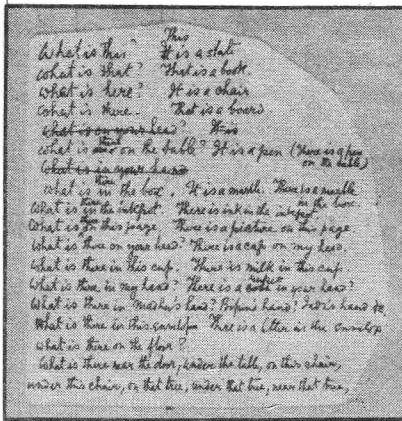 This
What is this? It is a slate
What is that? That is a book.
What is here? It is a chair
What is there. That is a board
What is on your head? It is
What is there on the table? It is a pen (There is a pen on the table)
What is in your hand
What is there in the box. It is a marble. There is a marble in the box.
What is there in the inkpot. There is ink in the inkpot.
What is there on this page. There is a picture on this page.
What is there on your head? There is a cap on my head.
What is there in this cup. There is milk in this cup.
What is there in my hand? There is a rupee in your hand?
What is there in Master's hand? hand? hand &c.
What is there in this envelope There is a letter in the envelop
What is there on the floor?
What is there near the door, under the table, on this chair,
under this chair, on that tree, under that tree, near that tree,